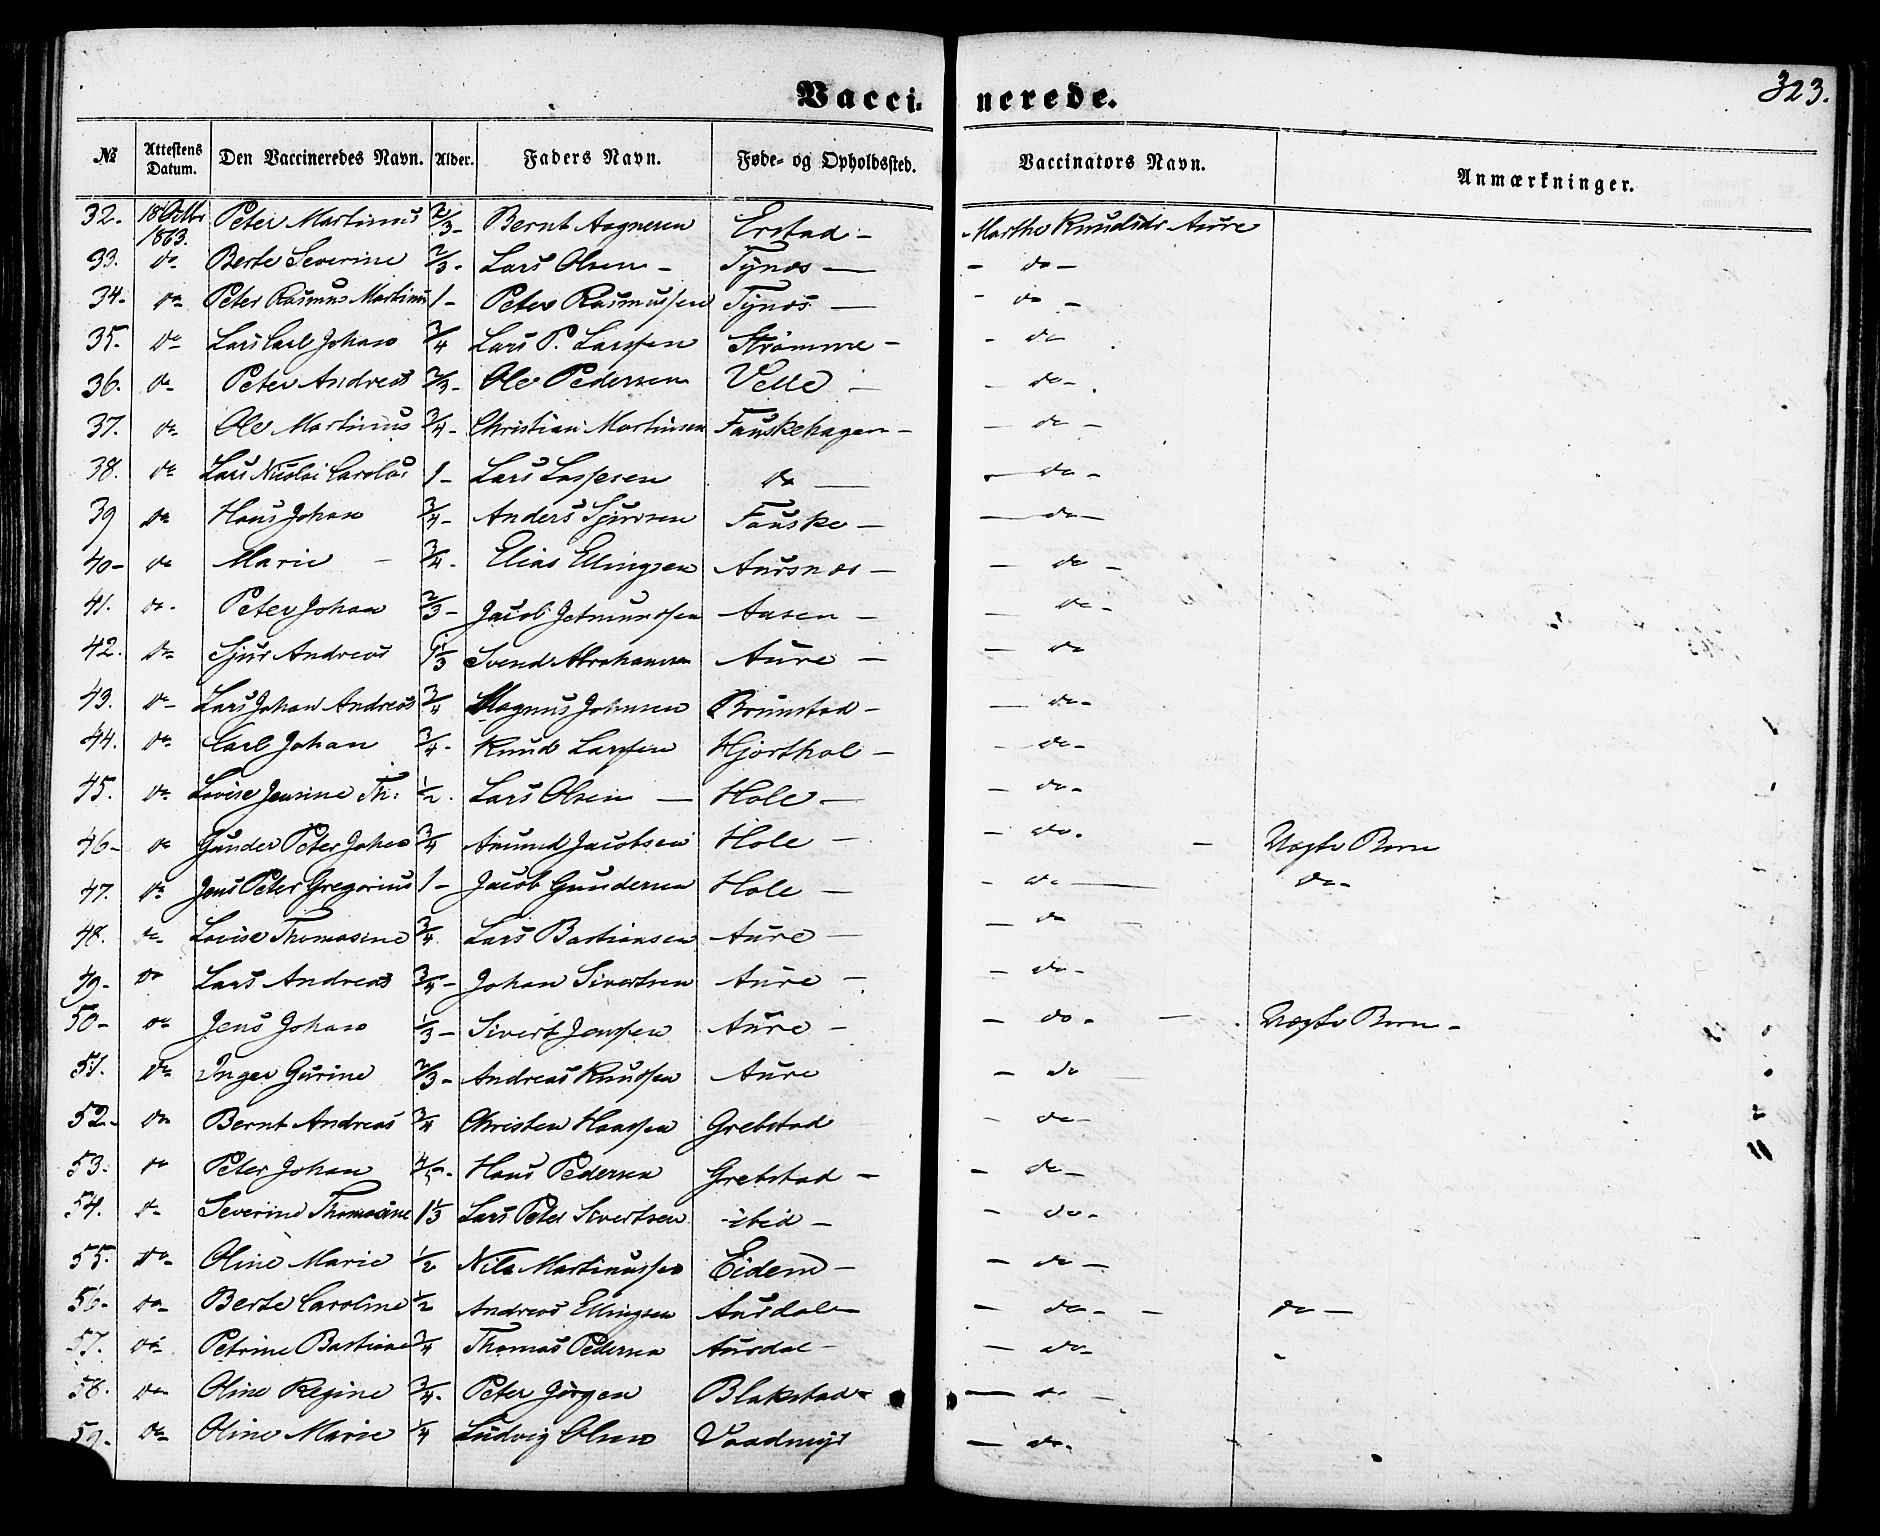 Vacci- nerede.
323.
№ Attestens Datum. Den Vaccineredes Navn. Alder. Faders Navn. Føde- og Opholdssted. Vaccinators Navn. Anmærkninger.
32. 18 Octbr 1863. Peter Martinus 2/3 - Bernt Aagnesen Erstad - Marthe Knudsdr Aure
33. do Berte Severine 2/3 - Lars Olsen - Tynæs - - do -
34. do Peter Rasmus Martinus 1 - Peter Rasmussen Tynæs - - do -
35. do Lars Carl Johan 3/4 Lars P. Larssen Strømme - - do
36. do Peter Andreas 2/3 - Ole Pedersen Velle - - do -
37. do Ole Martinus 3/4 - Christian Martinsen Fauskehagen - - do -
38. do Lars Nicolai Carolus 1 - Lars Lassesen do - - do -
39 do Hans Johan 3/4 - Anders Sjursen Fauske - - do -
40 - do Marie - 3/4 - Elias Ellingsen Aursnæs - - do -
41. do - Peter Johan 2/3 - Jacob Jetmundssen Aasen - - do -
42. do Sjur Andreas 1 1/3 Svend Abrahamsen Aure - - do
43. do Lars Johan Andreas 3/4 Magnus Johnsen Brunstad - - do -
44. do Carl Johan 3/4 - Knud Larssen Hjorthol - - do -
45. do Lovise Jensine Th: 1/2. Lars Olsen - Hole - - do -
46 - do Gunder Peter Johan 3/4 Amund Jacobsen Hole - - do. - Uægte Børn
47. do Jens Peter Gregorius 1 - Jacob Gundersen Hole - - do - do -
48. do Lovise Thomasine 3/4 Lars Bastiansen Aure - - do -
49 - do Lars Andreas 3/4 - Johan Sivertsen Aure - - do -
50 - do Jens Johan 1/3 - Sivert Jenssen Aure - - do - - Uægte Børn -
51. do Inger Gurine 2/3 - Andreas Knudsen Aure - do
52 - do Bernt Andreas 3/4 Christen Hanssen Grebstad - do -
53. do Peter Johan 4/5 - Hans Pedersen Grebstad - - do -
54. do Severine Thomasine 1 1/3 Lars Peter Sivertsen - ibid - - do -
55. do - Oline Marie 1/2 Nils Martinussen Eidem - - do -
56 - do - Berte Caroline 1/2 Andreas Ellingsen Aursdal - - do - - do -
57. do Petrine Bastiane 3/4 Thomas Pedersen Aursdal - - do -
58. do - Oline Regine 3/4 - Peter Jørgen Blakstad - - do -
59 - do - Oline Marie 1/4 Ludvig Olsen Vaadmyr - do -